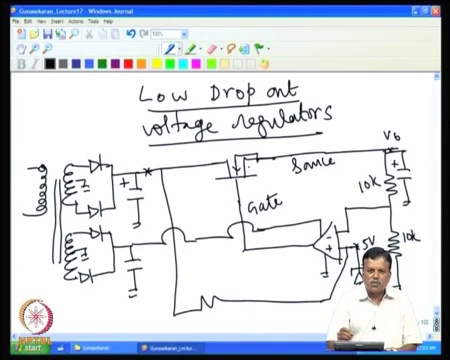 Gunasekaran_Lecture17
File Edit View Insert Actions Tools Help
100%
B I
Low Drop out
voltage regulators
V0
Source
+
+
10k
Gate
-
+
5V
10k
NPTEL
start
Gunasekaran
Gunasekaran_Lectur...